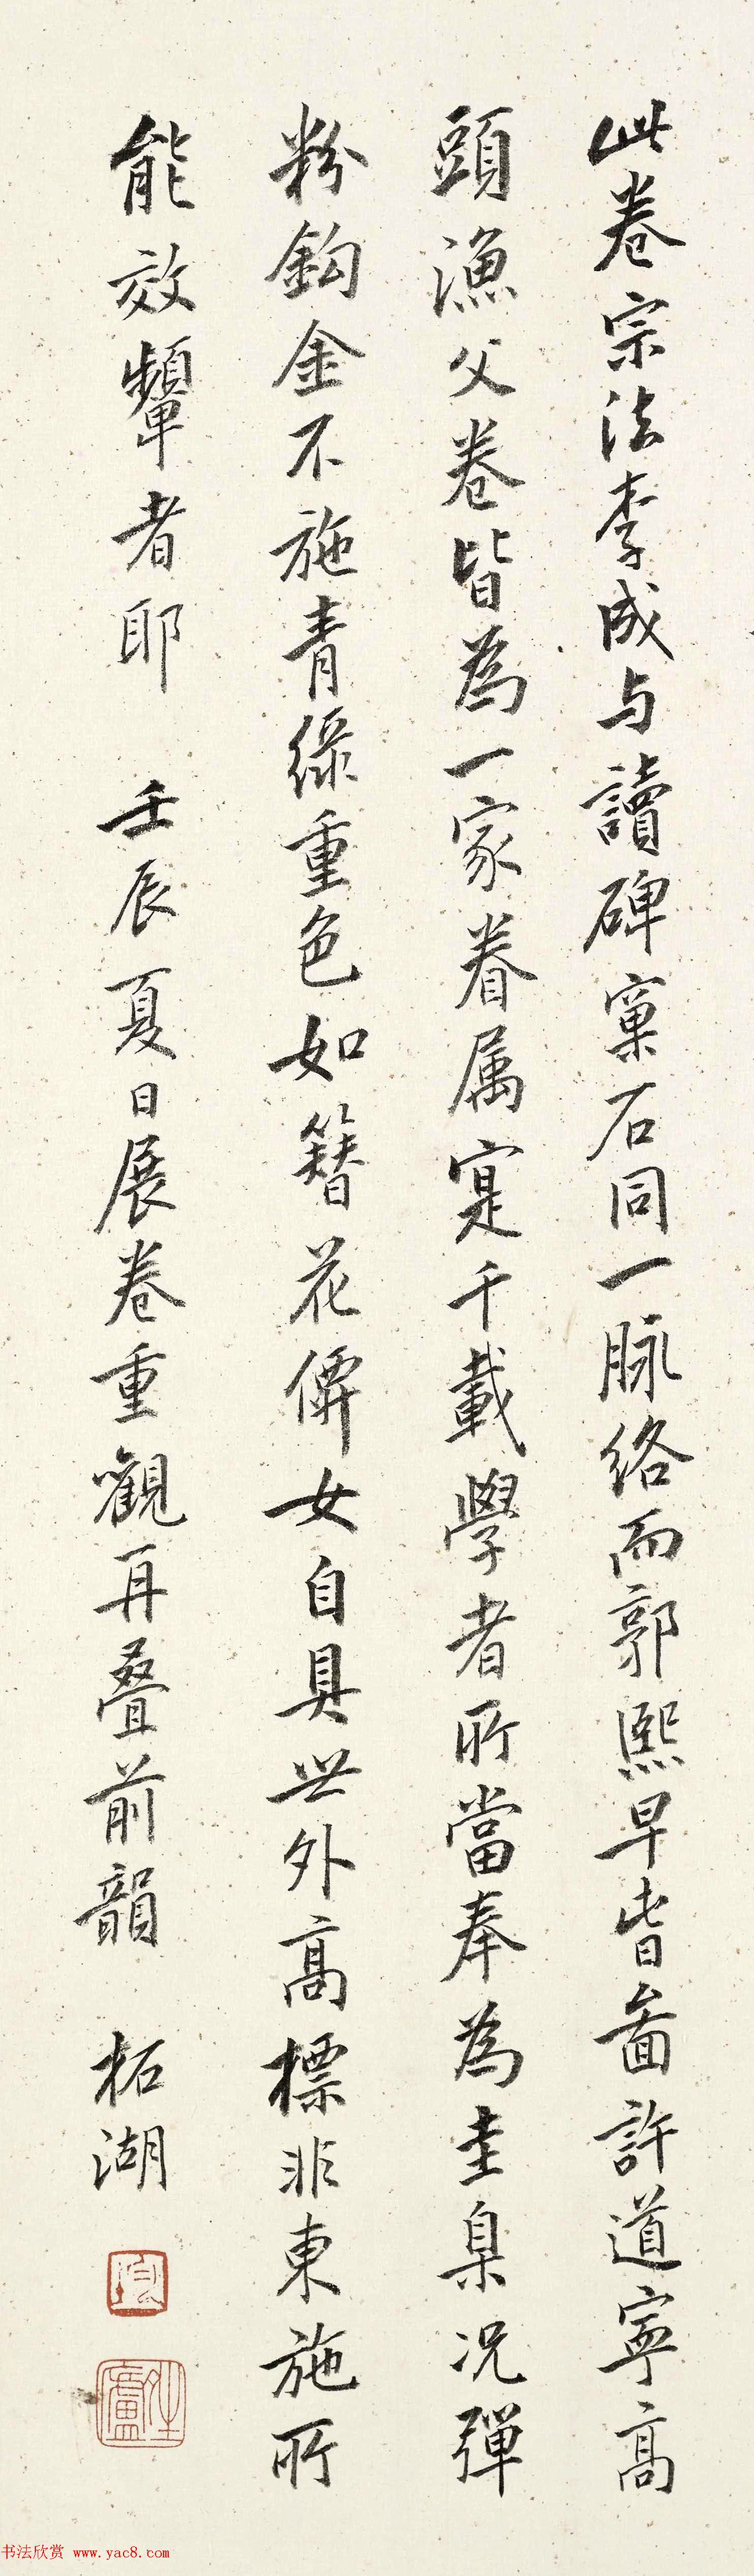 此卷宗法李成与讀碑窠石同一脉络而郭熙早旹啚許道寧高
頭漁父卷皆為一家眷属寔千載學者所當奉為圭臬況彈
粉鈎金不施青綠重色如簪花僊女自具世外高標非東施所
能效顰者耶 壬辰夏日展卷重觀再叠前韻 柘湖
书法欣赏 www.yac8.com